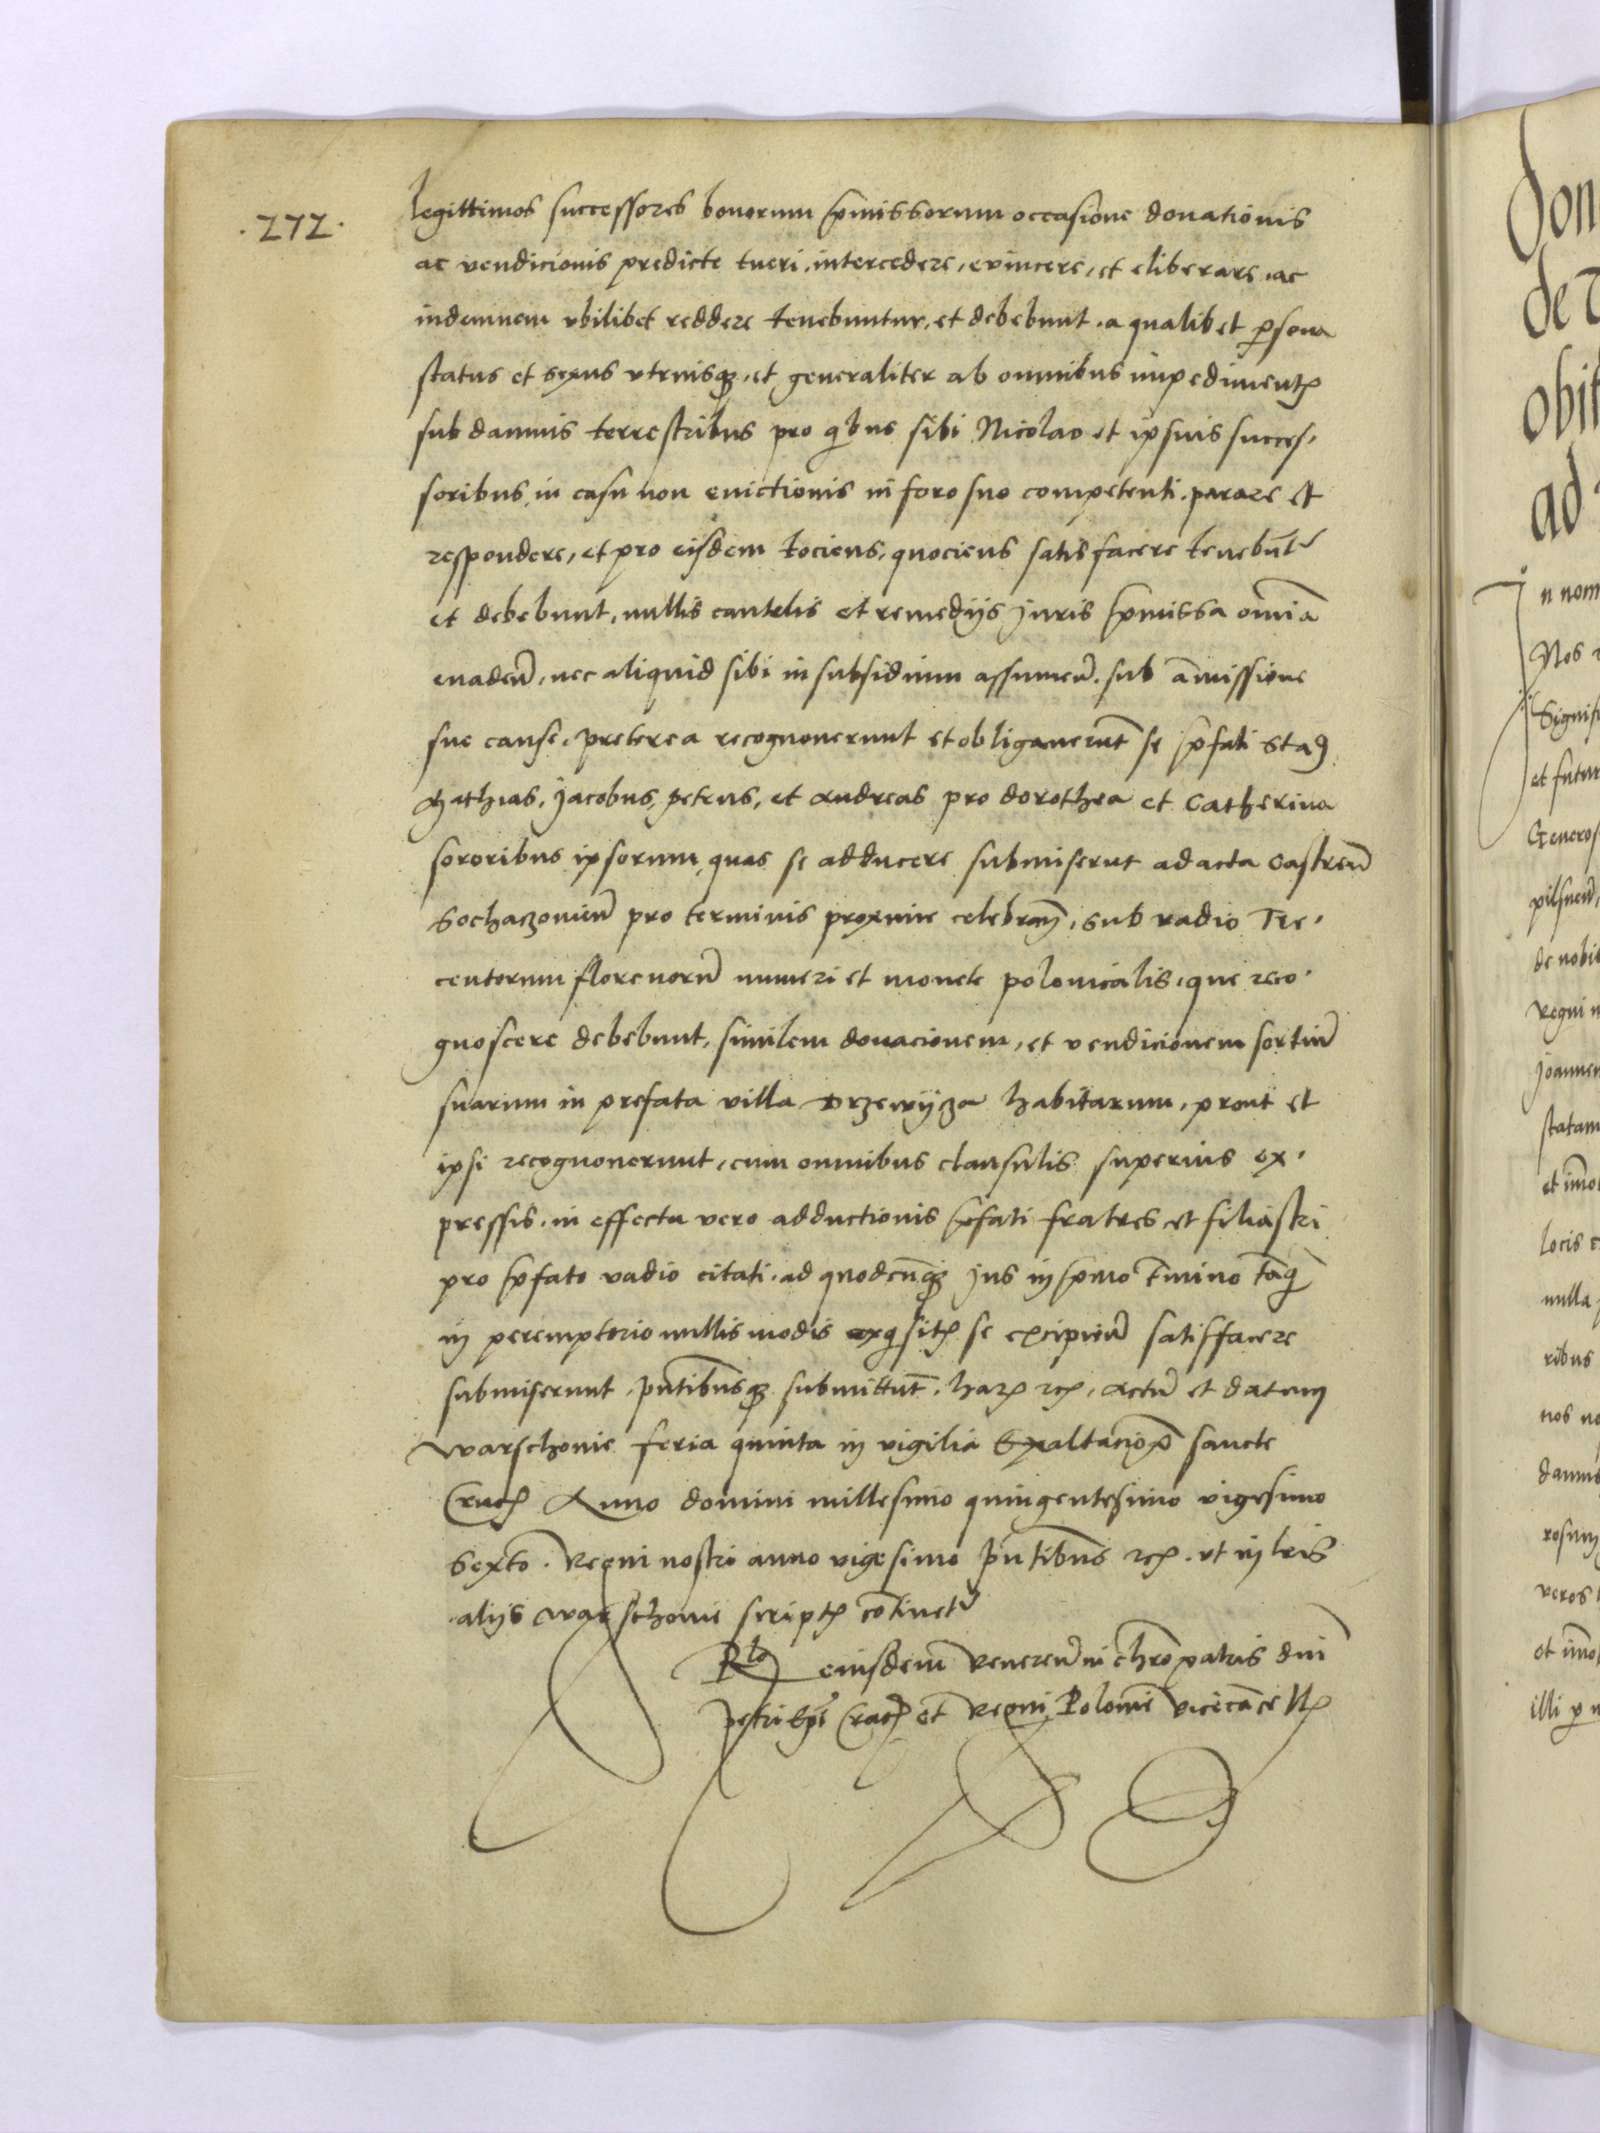 .272.
legittimos successores bonorum p̄missorum occasione donationis
ac vendicionis predicte tueri, intercedere, evincere, et eliberare, ac
indemnem vbilibet reddere tenebuntur, et debebunt, a qualibet ꝑsona
status et sexus vtriusqꝫ, et generaliter ab omnibus impedimentꝭ
sub damnis terrestribus pro qbus sibi Nicolao et ipsius succes,
soribus, in casu non euictionis in foro suo competenti, parare et
respondere, et pro eisdem tociens, quociens satisfacere tenebūtʳ
et debebunt, nullis cautelis et remedijs Juris p̄missa omīa
euadeñ, nec aliquid sibi in subsidium assumeñ, sub amissione
sue cause, preterea recognouerunt et obligauerūt se p̄fati Staꝰ
Mathias, Jacobus, petrus, et Andreas pro dorothea et Catherina
sororibus ipsorum, quas se adducere submiserut ad acta Castreñ
Sochaczouieñ pro terminis proxime celebrañ, sub vadio Tre,
centorum florenorū numeri et monete polonicalis, que reco,
gnoscere debebunt, similem donacionem, et vendicionem sortiū
suarum in prefata villa Drzewycza habitarum, prout et
ipsi recognouerunt, cum omnibus clausulis superius ex,
pressis, in effectu vero adductionis p̄fati fratres et filiastri
pro p̄fato vadio citati, ad quodcūqꝫ Jus in p̄mo t̄mino taq̄
in peremptorio nullis modis exqsitꝭ se excipieñ satisfacere
submiserunt, pn̄tibusqꝫ submittūt, harꝭ rcꝭ, Actū et datum
Warschouie feria quinta in vigilia Exaltacioꝭ sancte
Crucꝭ Anno domini millesimo quingentesimo vigesimo
Sexto. Regni nostri anno vigesimo pn̄tibus rcꝭ. vt in lris
alijs Warschouie scriptꝭ cōtinetʳ
Rlo eiusdem Reuereñ in chro patris dni
petri Epi Cracꝭ et Regni Polonie vicecancellꝭ